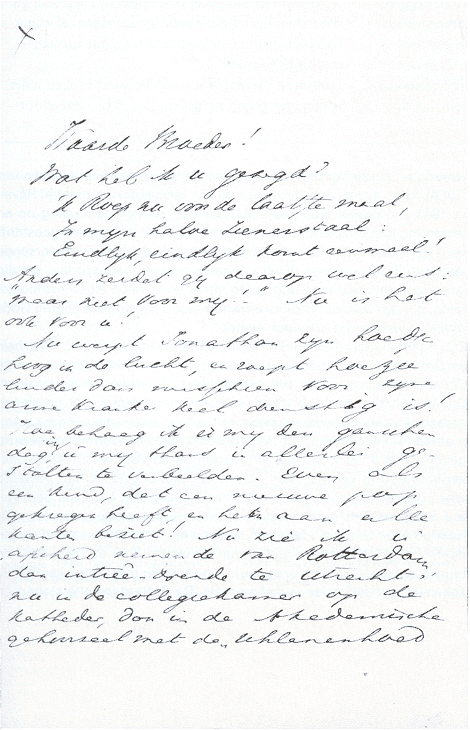 Waarde Broeder!
Wat heb ik u gezegd?
'k Roep nu voor de laatste maal,
In mijn halve Zienerstaal:
Eindlijk, eindlijk komt eenmaal!
Anders zeidet gij daarop wel eens:
"maar niet voor mij!" Nu is het
ook voor u!
Nu werpt Jonathan zijn hoedje
hoog in de lucht, en roept hoezee
luider dan misschien voor zijne
arme kranke keel dienstig is!
behaag ik er mij den ganschen
dag in u mij thans in allerlei ge-
stalten te verbeelden. Even als
een kind, dat een nieuwe pop
gekregen heeft, en hem aan alle
kanten beziet! Nu zie ik u
afscheid nemende van Rotterdam
dan intrêe-doende te Utrecht;
nu in de collegiekamer op de
katheder, dan in de Akademische
gehoorzaal met den Uhlanenhoed